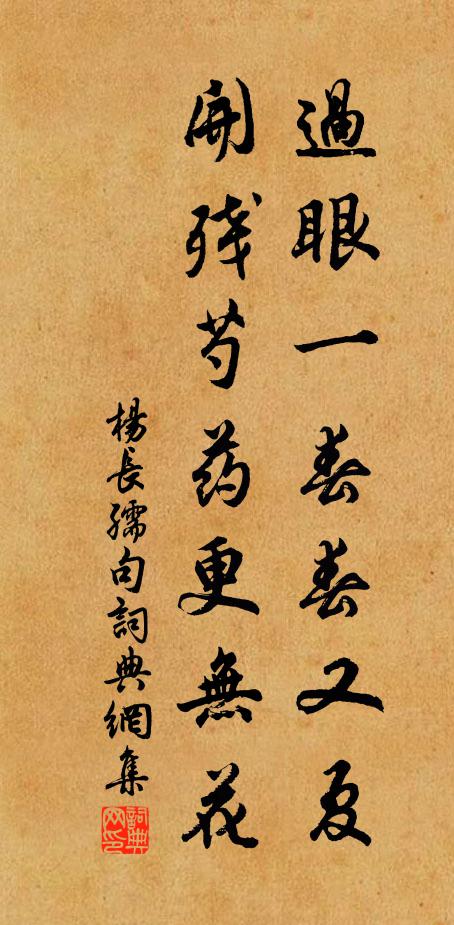 過眼一春春又夏
開殘芍药更無花
楊長孺句詞典網集
詞典网印